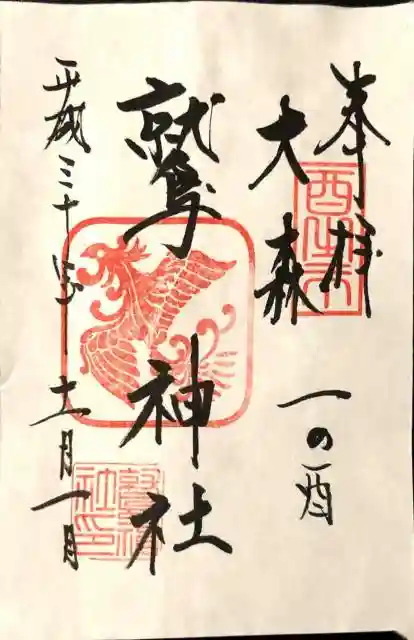 奉拝
大森
一の酉
鷲神社
平成三十年
十一月一日